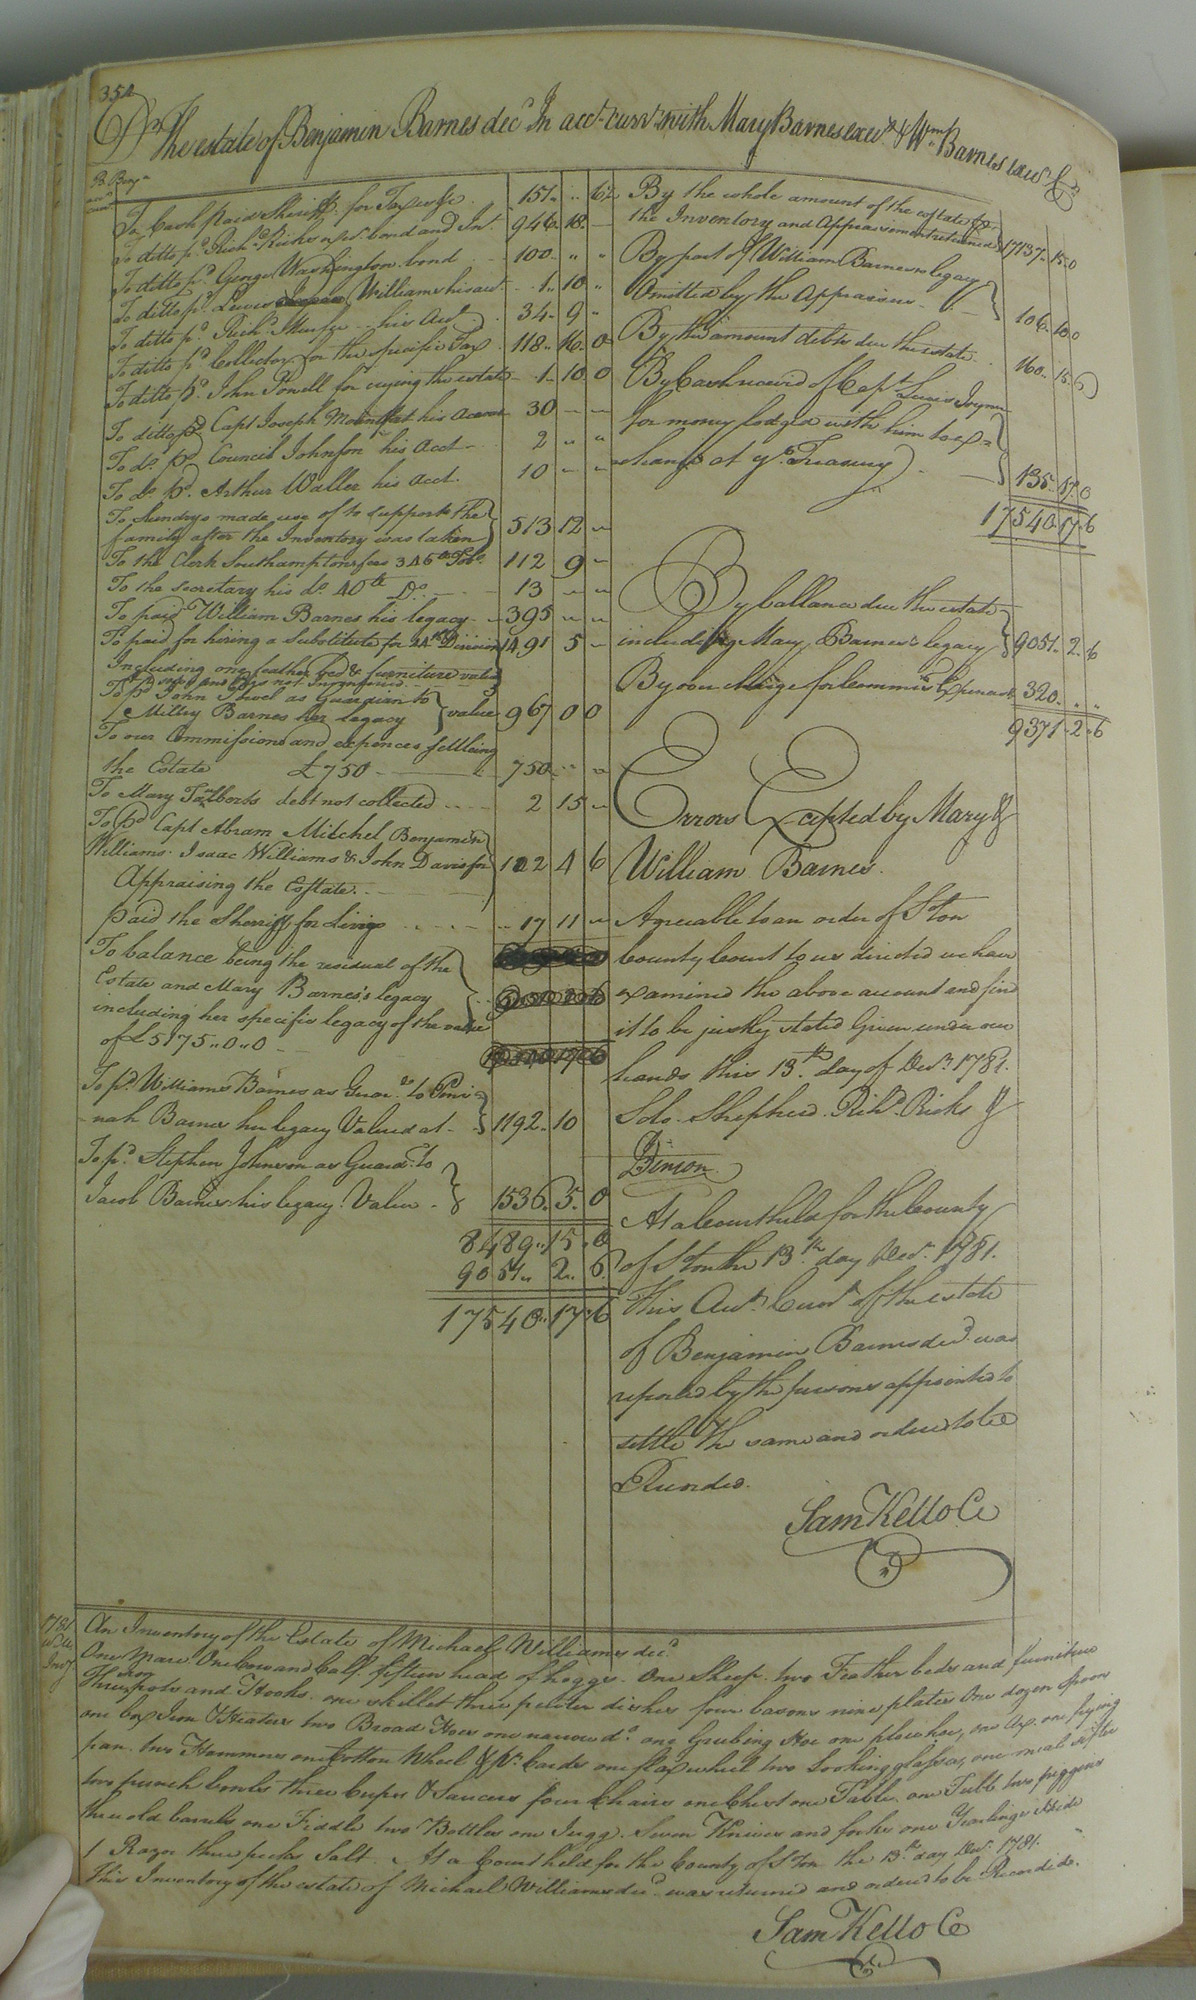 354
Dr The estate of Benjamin Barnes decd In acct currt with Mary Barnes exex & Wm Barnes exer Cr
To Cash paid Sheriff for Tax &c 151 .. 6
To ditto pd Richd Ricks bond and Int. 946 18 —
To ditto pd George Washington bond 100 " "
To ditto pd Lewis Williams his act 1 10 "
To ditto pd Richd his Act 34 9 "
To ditto pd Collector for the specific Tax 118 16 0
To ditto pd John Powell for crying the estate 1 10 0
To ditto pd Capt Joseph his Accot 30 — —
To do pd Council Johnson his Acct 2 " "
To do pd Arthur Waller his Acct. 10 — —
To Sundrys made use of to support the
family after the Inventory was taken 513 12 —
To the Clerk Southampton fees 346 lb Tobo 112 9 —
To the secretary his do 40 lb Do 13 — —
To paid William Barnes his legacy 395 " "
To paid for hiring a Substitute for 24th Division 1491 5 —
Including one feather bed & furniture value
not Inventoried
To pd John as Guardian to
Milley Barnes her Legacy value 967 0 0
To our Commissions and expences settleing
the Estate £750 — 750 .. ..
To Mary Talborts debt not collected 2 15 —
To pd Capt Abram Mitchel Benjamin
Williams Isaac Williams & John Davis for
Appraising the Estate 122 4 6
paid the Sherriff for Living 17 11 —
To balance being the residual of the
Estate and Mary Barnes's legacy
including her specific legacy of the value
of £5175..0..0
To pd Williams Barnes as Guar. to
nah Barnes her legacy Valued at 1192 10
To pd Stephen Johnson as Guard. to
Jacob Barnes his legacy Value 1536.5.0
8489..15.0
9051.. 2..6
17540..17.6
By the whole amount of the estate
the Inventory and Appraisement returned 17137.15.0
By part of William Barnes legacy
Omitted by the Appraisers 106.10.0
By the amount debts due the estate 160.15.6
By Cash received of Capt Lewis Joyner
for money lodged with him to ex=
change at ye Treasury 135.17.0
17540.17.6
By ballance due the estate
including Mary Barnes legacy 9051.2.6
By over charge for Comms & Expences 320 . " "
9371.2.6
Errors Excepted by Mary &
William Barnes.
Agreable to an order of S'ton
County Court to us directed we have
examined the above account and find
it to be justly stated Given under our
hands this 13th day of Decr 1781.
Solo. Shepherd Richd Ricks &
Denson
At a Court held for the County
of S'ton the 13th day Decr. 1781.
This Acct Currt of the estate
of Benjamin Barnes decd was
reported by the persons appointed to
settle the same and ordered to be
Recorded.
Sam Kello Cc
1781
Invy
An Inventory of the Estate of Michael Williams decd
One Mare One Cow and Calf fifteen head of hoggs. One Sheep. two Feather beds and furniture
Three iron pots and Hooks one skillet three peuter dishes four basons nine plates One dozen Spoons
one box Iron & Heaters two Broad Hoes one narrow do one Grubing Hoe one plow hoe, one Ax. one frying
pan two Hammers one Cotton Wheel & pr Cards one flax wheel two Looking glasses, one meal sifter
two punch bowls three Cups & Saucers four Chairs one Chest one Table. one Tubb two piggens
three old barrels one Fiddle two Bottles one Jugg. Seven Knives and forks one Yearlings Hide
1 Razor three pecks Salt. At a Court held for the County of S'ton the 13th day Decr. 1781.
This Inventory of the estate of Michael Williams decd was returned and ordered to be Recorded.
Sam Kello Cc